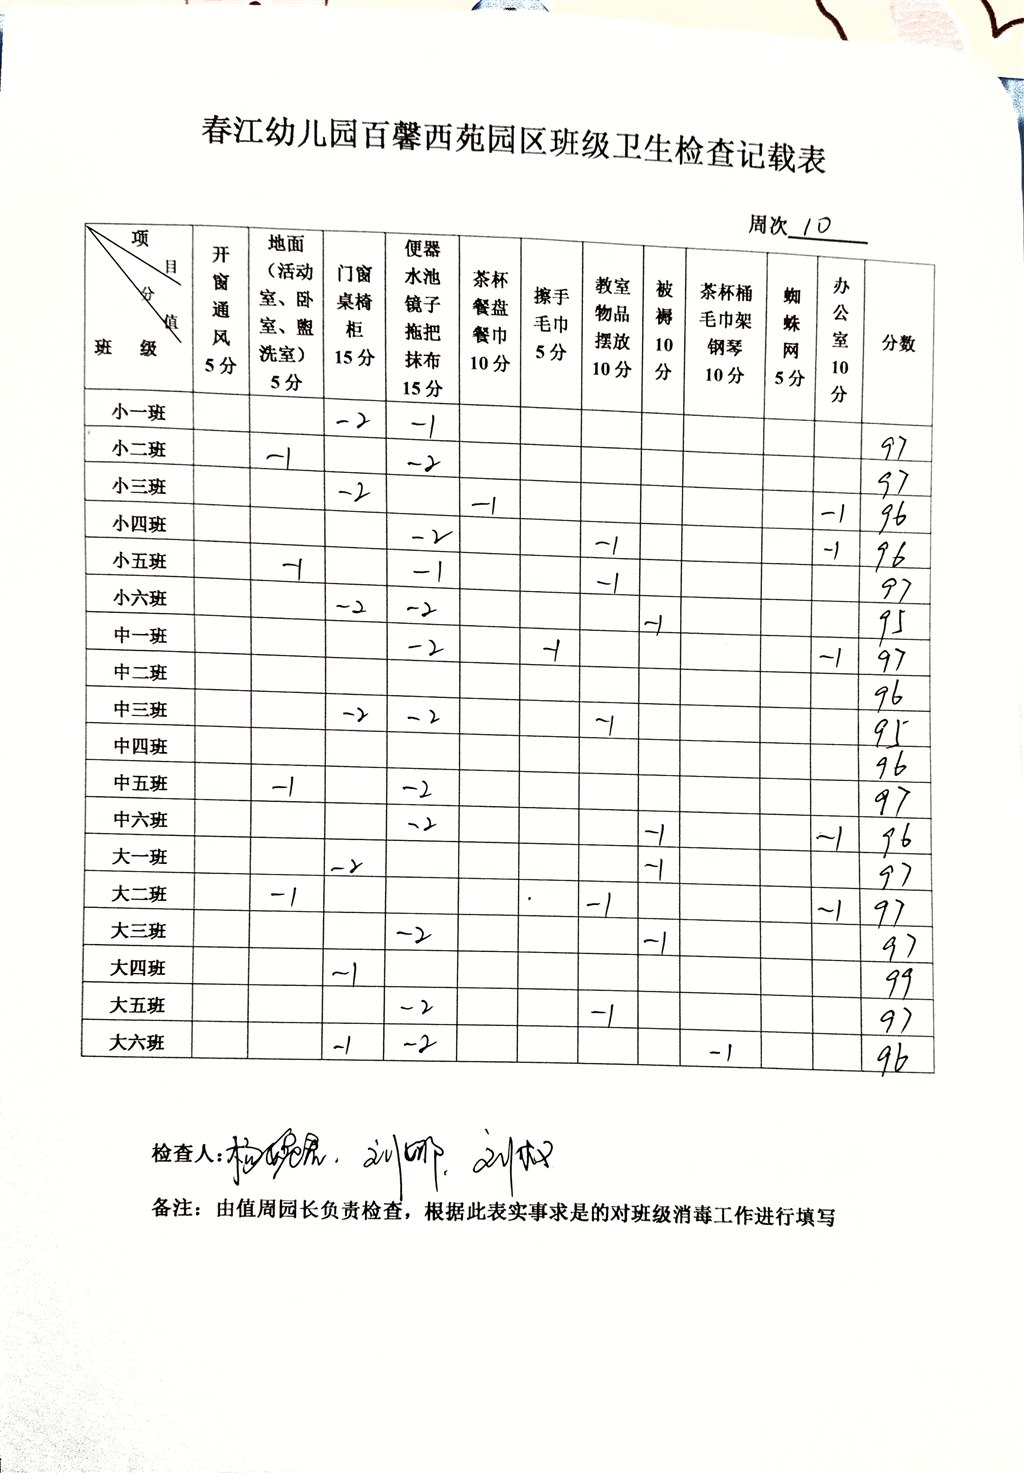 春江幼儿园百馨西苑园区班级卫生检查记载表
周次 10
项目 分值 班级 开窗通风5分 地面（活动室、卧室、盥洗室）5分 门窗桌椅柜15分 便器水池镜子拖把抹布15分 茶杯餐盘餐巾10分 擦手毛巾5分 教室物品摆放10分 被褥10分 茶杯桶毛巾架钢琴10分 蜘蛛网5分 办公室10分 分数
小一班 -2 -1 97
小二班 -1 -2 97
小三班 -2 -1 -1 96
小四班 -2 -1 -1 96
小五班 -1 -1 -1 97
小六班 -2 -2 -1 95
中一班 -2 -1 -1 97
中二班 96
中三班 -2 -2 -1 95
中四班 96
中五班 -1 -2 97
中六班 -2 -1 -1 96
大一班 -2 -1 97
大二班 -1 -1 -1 97
大三班 -2 -1 97
大四班 -1 99
大五班 -2 -1 97
大六班 -1 -2 -1 96
检查人: 刘娜. 刘
备注：由值周园长负责检查，根据此表实事求是的对班级消毒工作进行填写